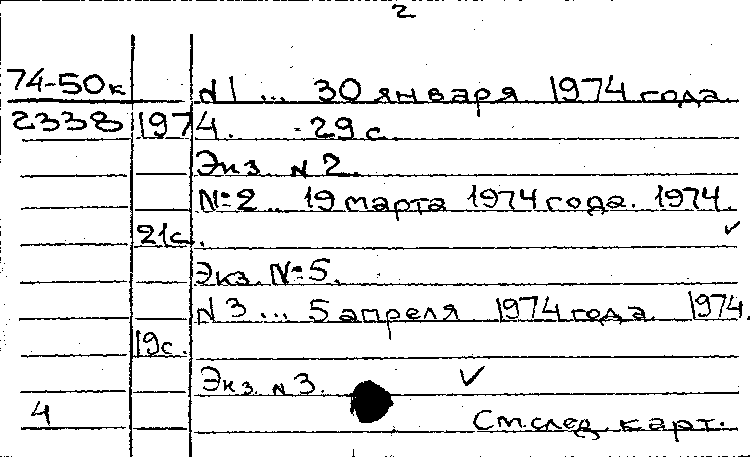 2
74-50к N1 ... 30 января 1974 года.
2338 1974. - 29 с.
Экз. N 2.
№2 ... 19 марта 1974 года. 1974.
21с.
Экз. №5.
N 3 ... 5 апреля 1974 года. 1974.
19с.
Экз. N 3.
4 См. след. карт.